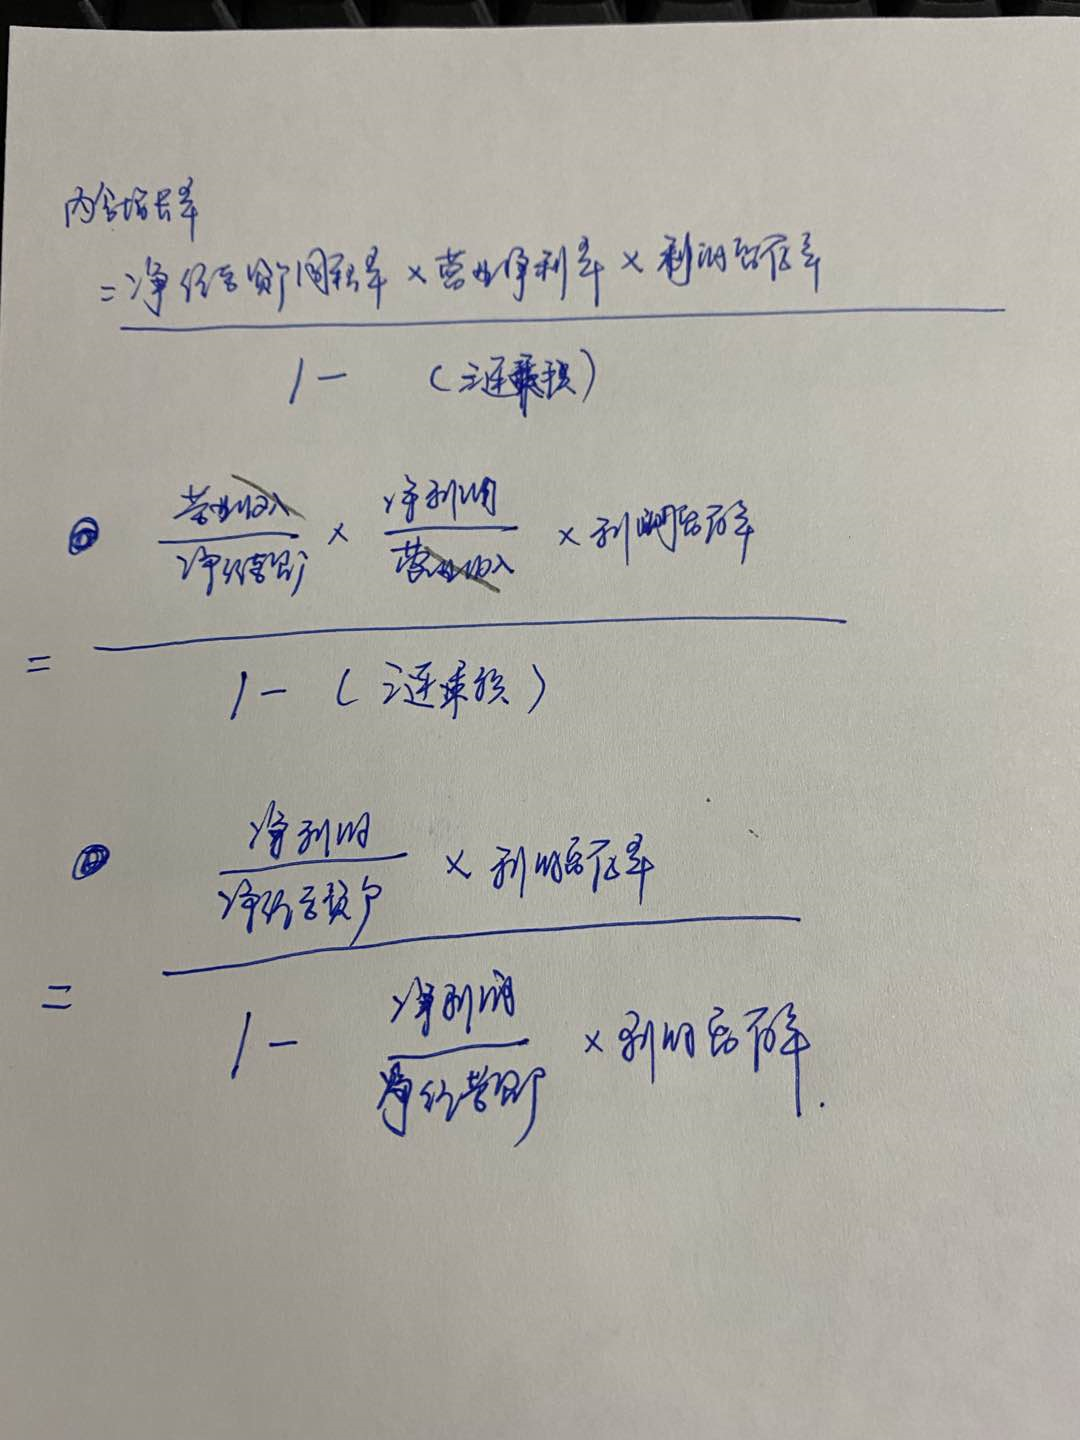 内含增长率
= 净经营资产周转率 × 营业净利率 × 利润留存率
1 - (三连乘积)
营业收入 × 净利润 × 利润留存率
净经营资产 营业收入
=
1 - (三连乘积)
净利润 × 利润留存率
净经营资产
=
1 - 净利润 × 利润留存率.
净经营资产